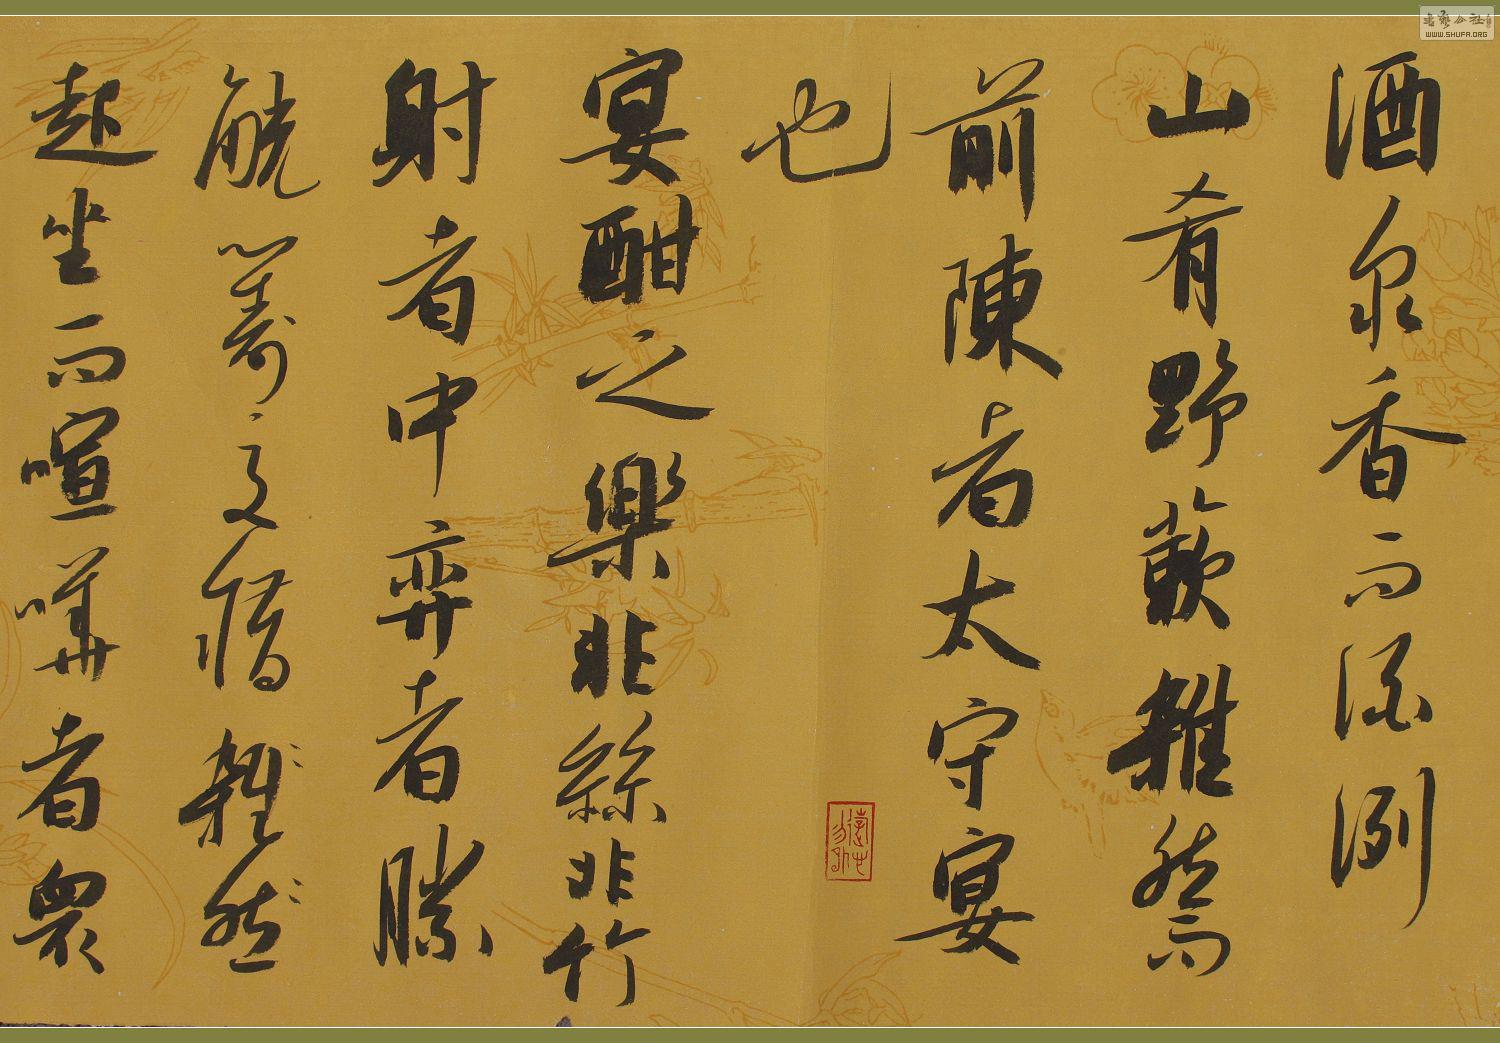 酒泉香而酒洌
山肴野蔌雜然而
前陳者太守宴
也
宴酣之樂非絲非竹
射者中弈者勝
觥籌交惜雜然
起坐而喧嘩者衆
WWW.SHUFA.ORG